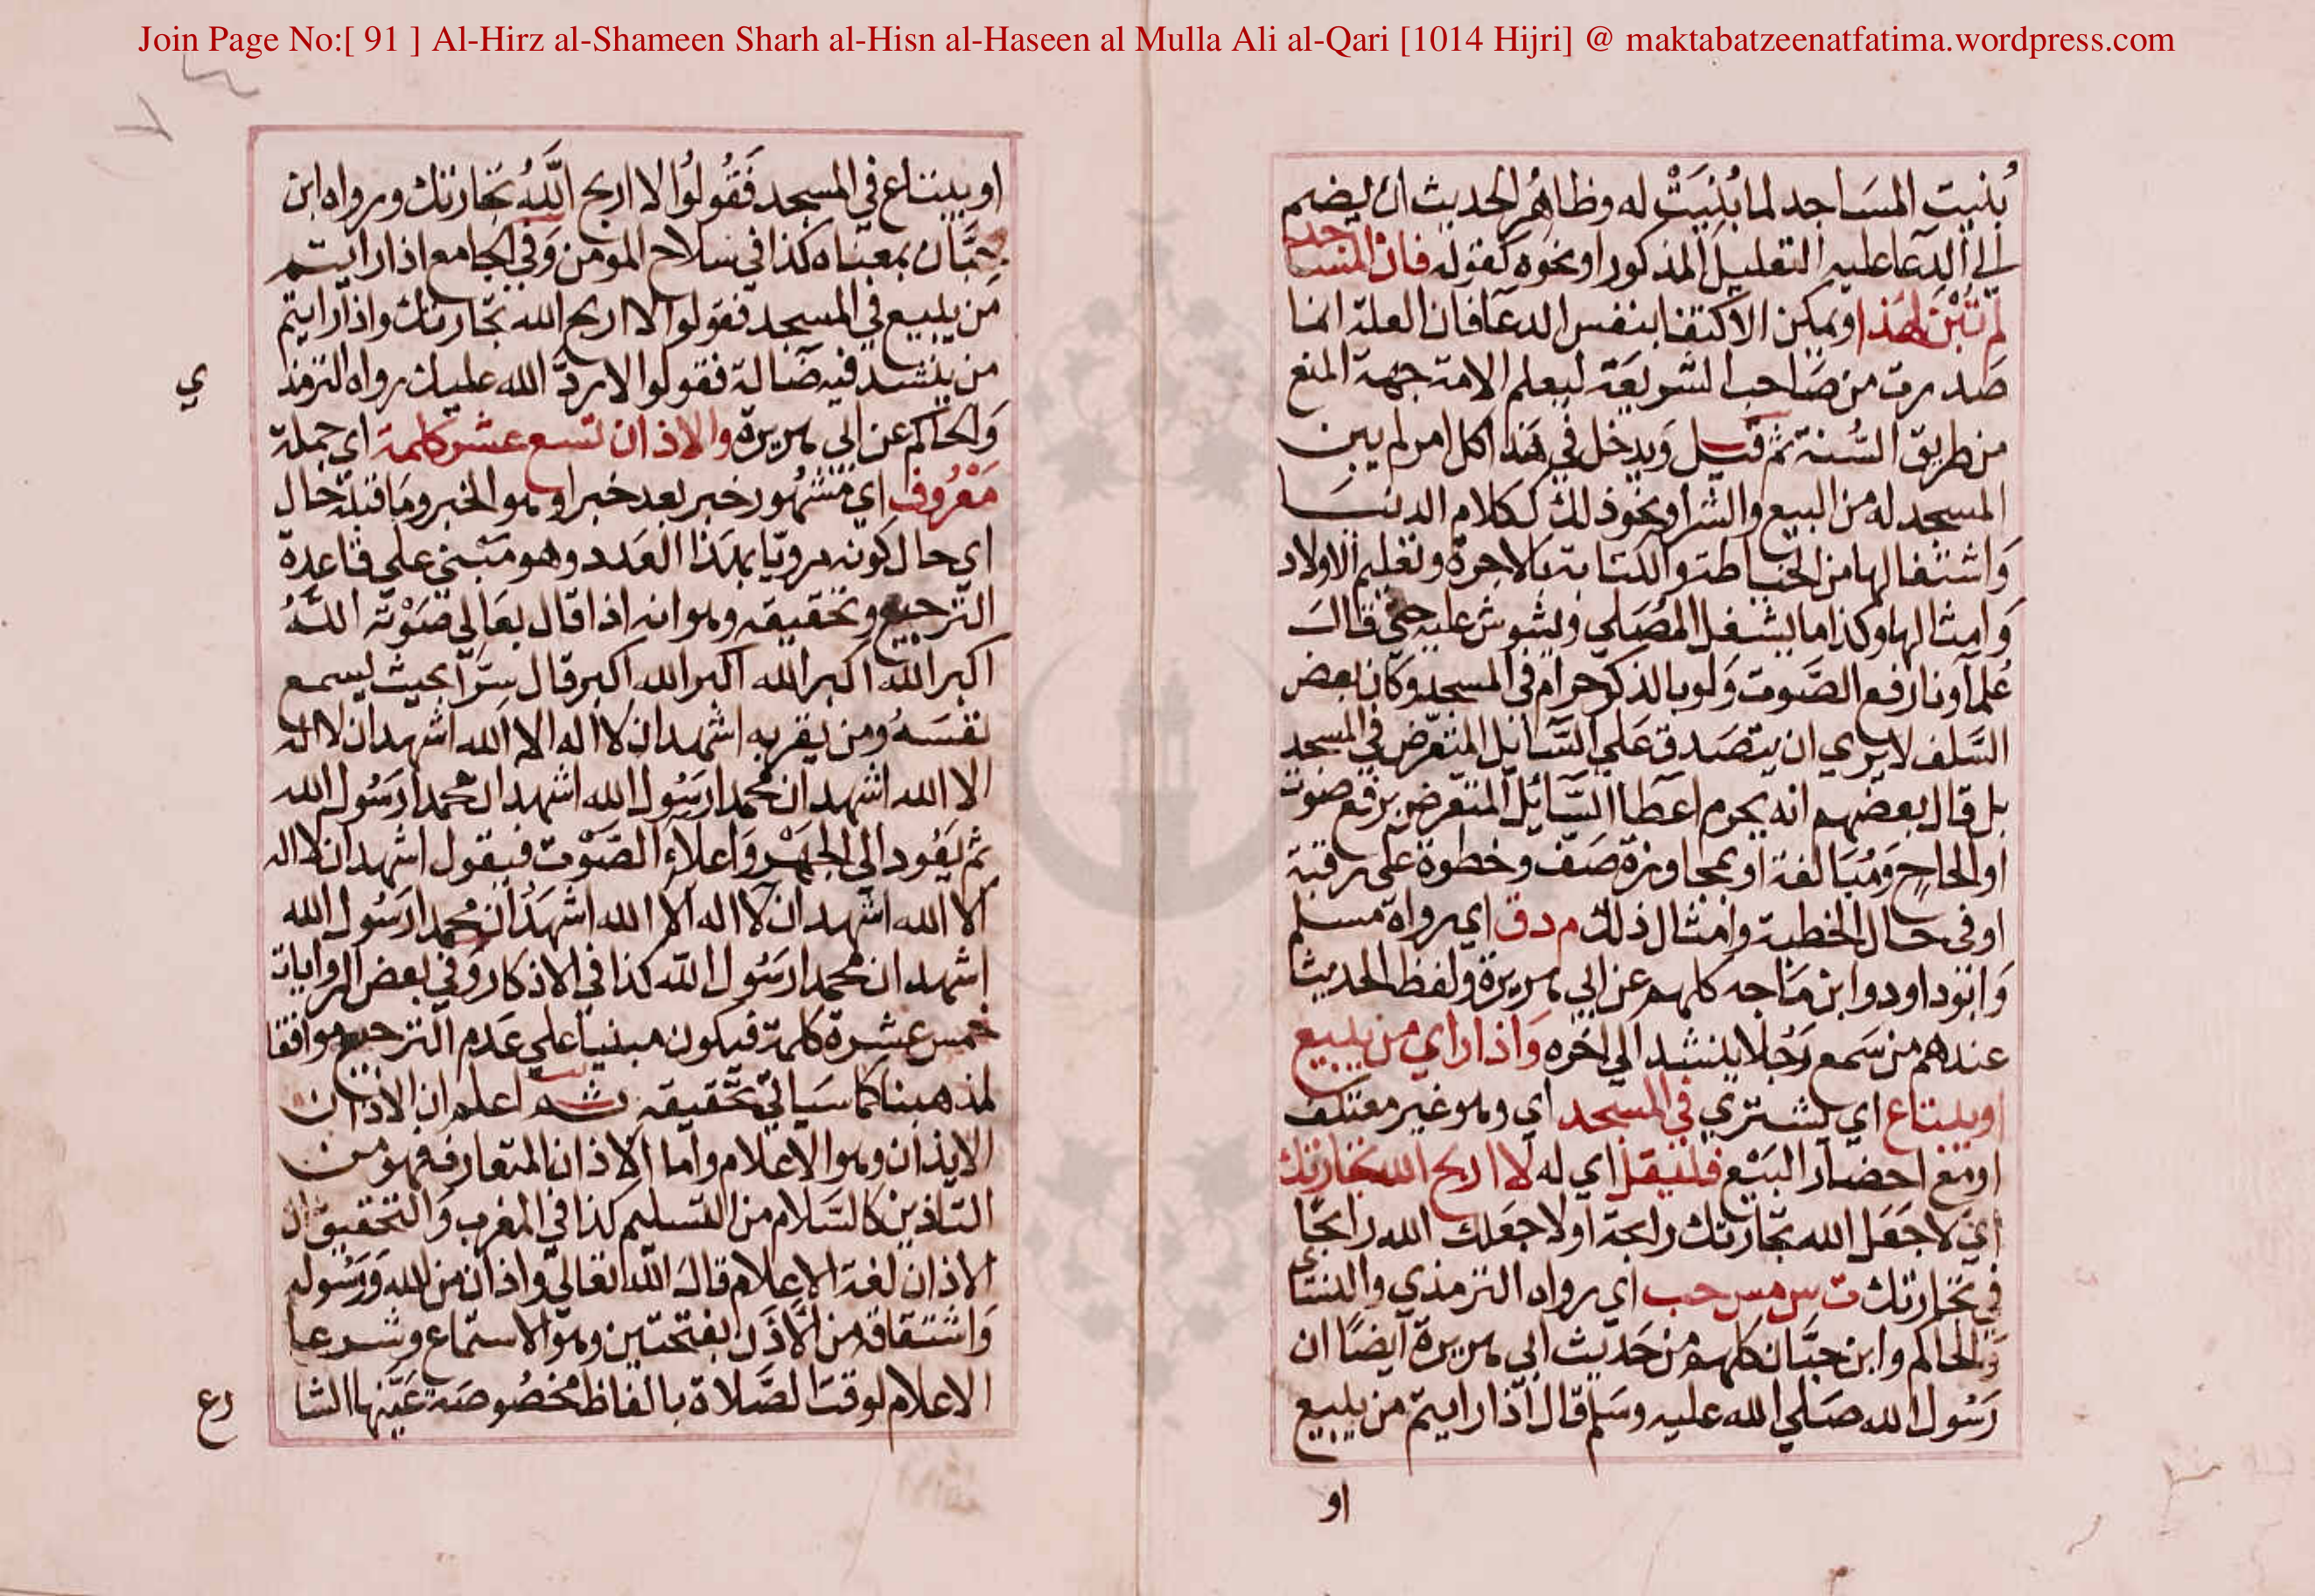 Join Page No:[ 91 ] Al-Hirz al-Shameen Sharh al-Hisn al-Haseen al Mulla Ali al-Qari [1014 Hijri] @ maktabatzeenatfatima.wordpress.com
بُنيت المسَاجد لما بُنِيَتْ له وظاهُر الحديث ان يضم
الي الدعا عليه التعليل المذكور او نحوه كقوله فان المساجد
لم تُبْنَ لهذا ويمكن الاكتفا بنفس الدعا فان العلة انما
صدرت من صَاحب الشريعَة ليعلم الامة جهة المنع
من طريق السُّنة ثم قيل وَيدخل في هَذا كل امر لم يبن
المسجد له من البيع والشرا ونحو ذلك ككلام الدنيا
وَاشتغالها من الخياطة والكتابة بالاجرة وتعليم الاولاد
وَامثالها وكذا ما يشغل المُصَلي ويشوش عليه حتي قالَ
عُلماونا رفع الصَّوت وَلو بالذكر حرام في المسجد وكان بعض
السَّلف لا يري ان يتصَدق عَلي السَّايل المتعرّض في المسجد
بل قال بعضهم انه يحرم اعطا السَّائل المتعرض برفع صوت
او الحاح وَمُبَالغة او بمجاوزة صَف وخطوة علي رقبة
او في حال الخطبة وامثال ذلك م د ق اي رواه مسلم
وَابُو داود وابن مَاجه كلهم عن ابي هريرة ولفظ الحديث
عندهم من سَمع رَجُلا ينشد الي اخره وَاذا راي من يبيع
او يبتاع اي يشتري في المسجد اي وهو غير معتكف
او مع احضار البَيْع فليقل اي له لا اربح الله تجارتك
اي لا جَعَل الله تجارتك رابحة او لا جعَلك الله رابحًا
في تجارتك ت س مس حب اي رواه الترمذي والنسائي
وَالحاكم وابن حبَّان كلهم من حَديث ابي هريرة ايضًا ان
رَسُول الله صَلي الله عليه وسَلم قال اذا رايتم من يبيع
او
او يبتاع في المسجد فَقُولُوا لا اربح اللَّهُ تجَارتك ورواه ابن
حِبَّان بمعناه كذا في سلاح المومن وَفي الجامع اذا رايتم
مَن يبيع في المسجد فقولوا لا اربح الله تجارتك واذا رايتم
من ينشد فيه ضَالة فقولوا لا ردَّ الله عليك رواه الترمذ
ي
وَالحاكم عن ابي هريرة والاذان تسع عشر كلمة اي جملة
مَعْرُوف اي مشهُور خبر بعد خبر او هو الخبر ومَا قبله حال
اي حال كونه مرويّا بهذا العَدد وهو مَبْني علي قاعدة
الترجيع وتحقيقه وهو انه اذا قال بعَالي صَوْته اللَّهُ
اكبر الله اكبر الله اكبر الله اكبر قال سِرّا بحيث يسمع
نفسَهُ ومن يقربه اشهد ان لا اله الا الله اشهد ان لا اله
الا الله اشهد ان محمدا رسُول الله اشهد ان محمدا رَسُول الله
ثم يَعُود الي الجهْر وَاعلاءِ الصَّوْت فيقول اشهد ان لا اله
الا الله اشهد ان لا اله الا الله اشهَدُ ان محمدا رَسُول الله
اشهد ان محمدا رسُول الله كذا في الاذكار وَفي بعض الروايات
خمس عشرة كلمة فيكون مبنيا علي عَدم الترجيع موافقا
لمذهبنا كما سيَاتي تحقيقه ثم اعلم ان الاذان
الايذان وهو الاعلام وامّا الاذان المتعارف فهو من
التاذين كالسَّلام من التسليم كذا في المغرب وَالتحقيق ان
الاذان لغة الاعلام قالَ الله تعالي واذان من الله وَرَسُوله
وَاشتقاقه من الاَذَن بفتحتين وهوَ الاستماع وشرعا
الاعلام لوقت الصَّلاة بالفاظ مخصُوصَة عَيَّنها الشا
رع